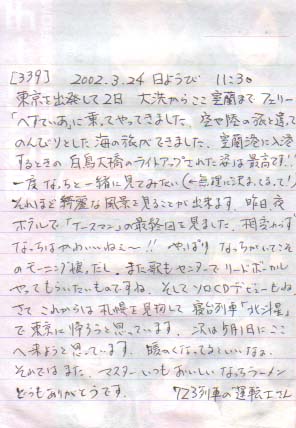 [339] 2002.3.24 日ようび 11:30
東京を出発して2日 大洗からここ室蘭までフェリー
「べすてぃあ」に乗ってやってきました。空や陸の旅と違って
のんびりとした海の旅ができました。室蘭港に入港
するときの白鳥大橋のライトアップされた姿は最高です!!
一度なっちと一緒に見てみたい(←無理に決まってるって!)
それほど綺麗な風景を見ることが出来ます。昨日、夜
ホテルで「ナースマン」の最終回を見ました。相変わらず
なっちはかわいいねぇ〜!! やっぱりなっちがいてこそ
のモーニング娘。だし、また歌もセンターでリードボーカル
やってもらいたいものですね。そしてソロCDデビューもね
さて これからは札幌を見物して寝台列車「北斗星」
で東京に帰ろうと思っています。次は5月1日にここ
へ来ようと思っています。暖かくなってるといいなぁ。
それではまた。マスター いつもおいしいなっちラーメン
どうもありがとうです。 723列車の運転士さん